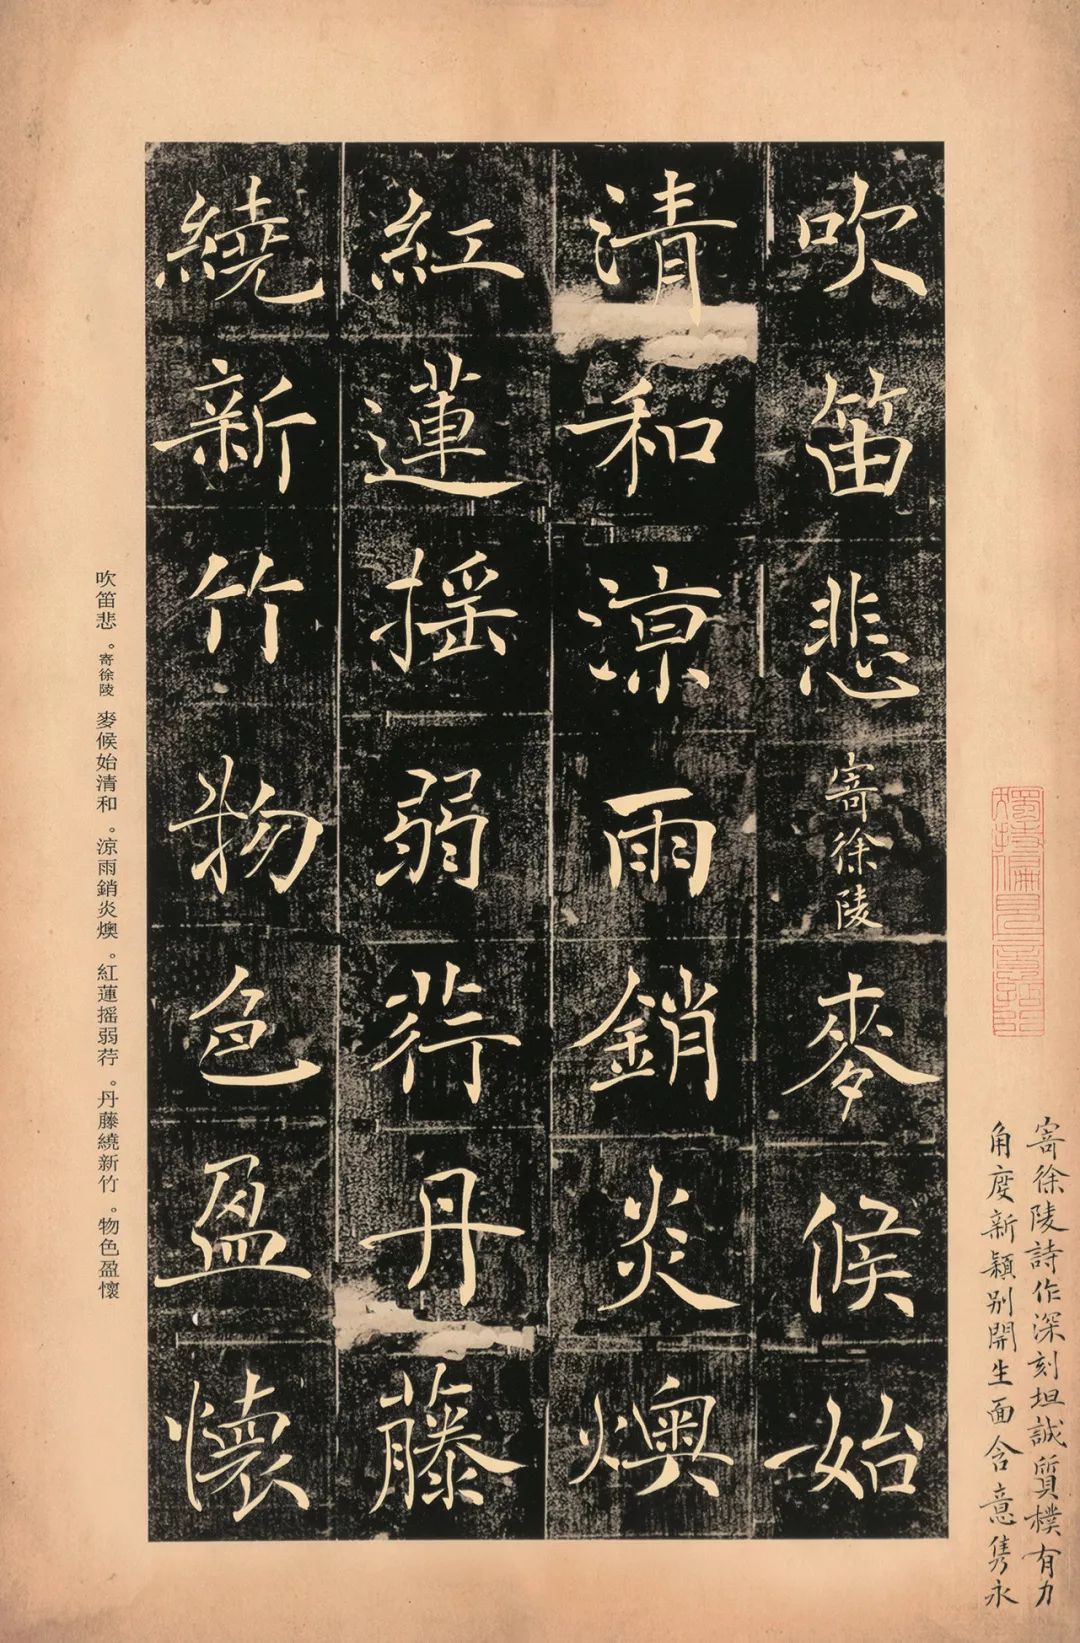 吹笛悲寄徐陵麥候始
清和涼雨銷炎燠
紅蓮摇弱荇丹藤
繞新竹物色盈懷
寄徐陵詩作深刻坦誠質樸有力
角度新穎别開生面含意隽永
吹笛悲。寄徐陵 麥候始清和。涼雨銷炎燠。紅蓮摇弱荇。丹藤繞新竹。物色盈懷